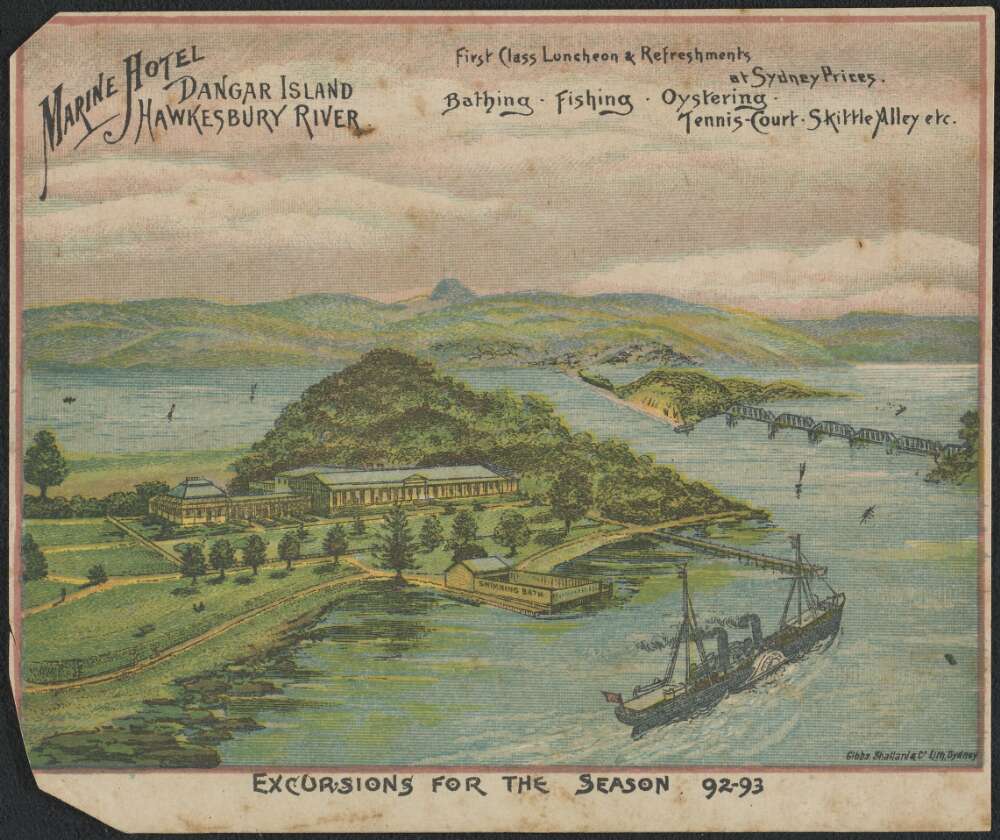 Marine Hotel
Dangar Island
Hawkesbury River
First Class Luncheon & Refreshments
at Sydney Prices.
Bathing · Fishing · Oystering ·
Tennis-Court · Skittle Alley etc.
SWIMMING BATH
Gibbs Shallard & Co Lith, Sydney
Excursions for the Season 92-93